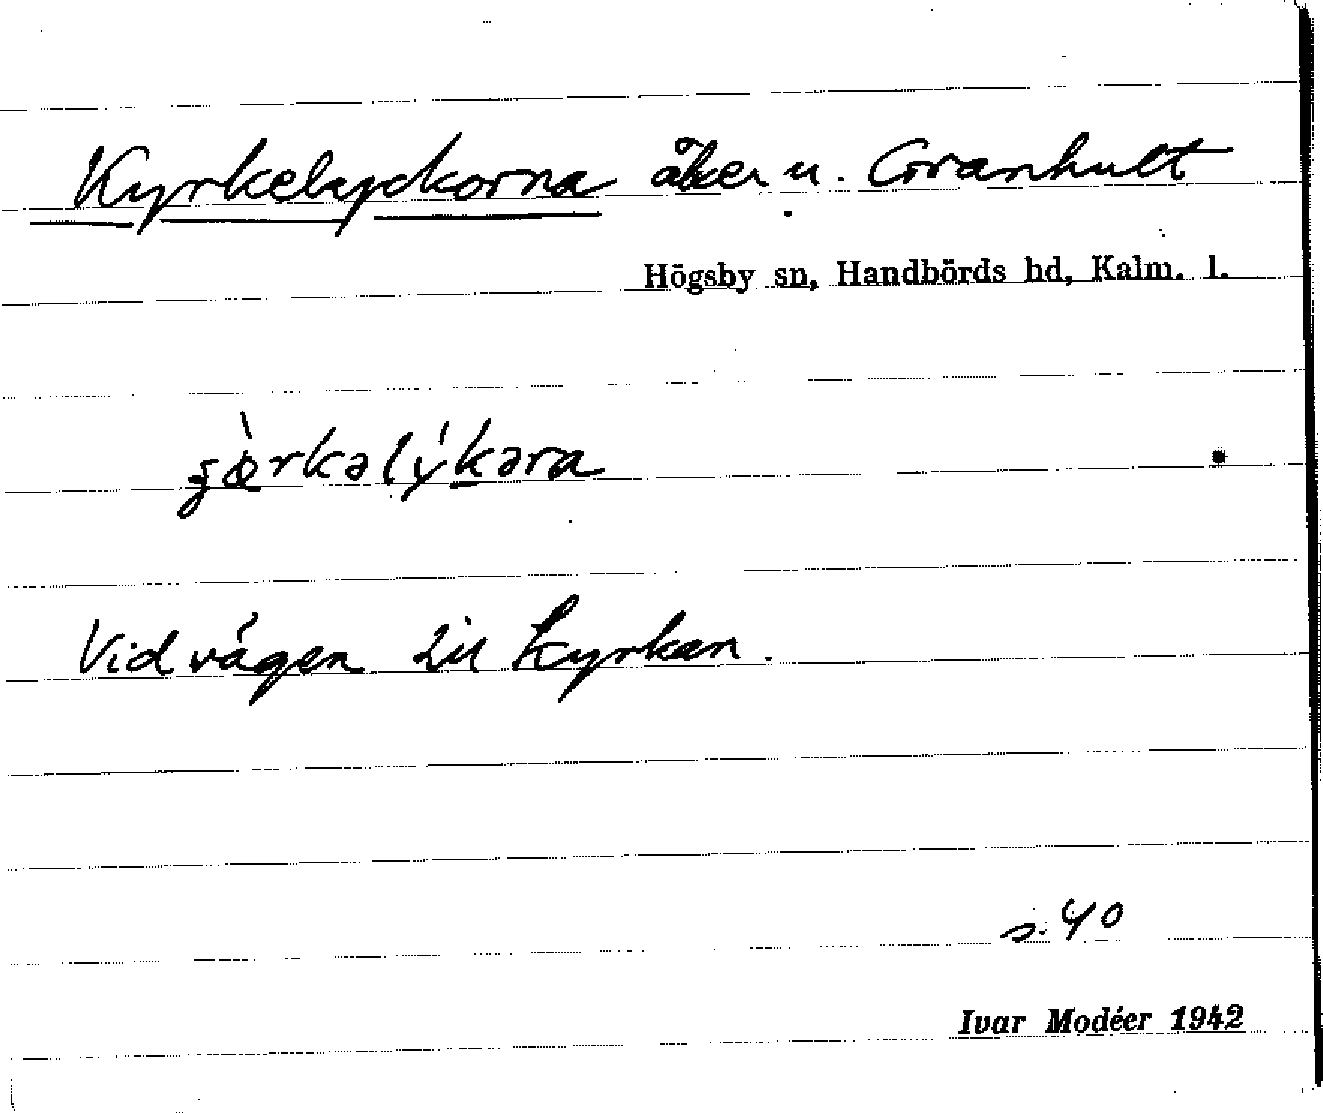 Kyrkelyckorna åker u. Granhult
Högsby sn, Handbörds hd, Kalm. l.
Vid vägen till kyrkan.
s. 40
Ivar Modéer 1942